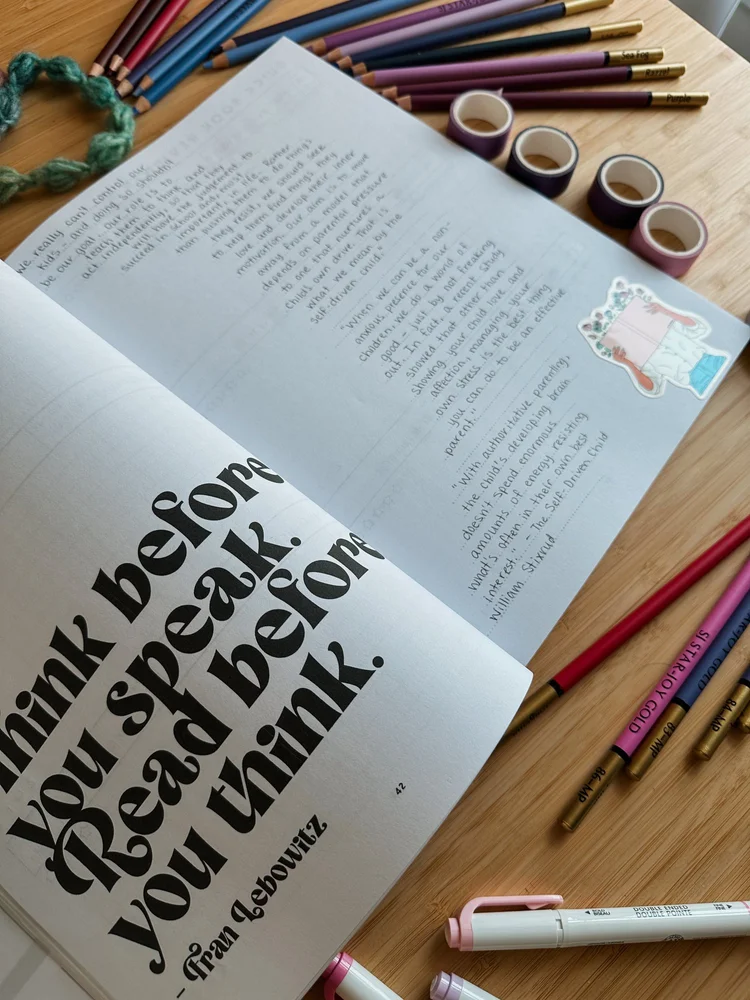 we really can't control our
kids - and doing so shouldn't
be our goal. Our role is to
teach them to think and
act independently, so that they
will have the judgement to
succeed in school and, most
important, in life. Rather
than pushing them to do things
they resist, we should seek
to help them find things they
love and develop their inner
motivation. Our aim is to move
away from a model that
depends on parental pressure
to one that nurtures a
child's own drive. That is
what we mean by the
self-driven child."
"When we can be a non-
anxious presence for our
children, we do a world of
good - just by not freaking
out. In fact, a recent study
showed that other than
showing your child love and
affection, managing your
own stress is the best thing
you can do to be an effective
parent."
"With authoritative parenting,
the child's developing brain
doesn't spend enormous
amounts of energy resisting
what's often in their own best
interest." - The Self-Driven Child
William Stixrud
Think before
you speak.
Read before
you think.
- Fran Lebowitz
42
Sea Fog
Purple
SISTAR-JOY GOLD
86-MP
83-MP
84-MP
DOUBLE ENDED
DOUBLE POINTE